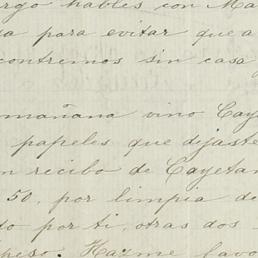 argo hables con Ma
a para evitar que a
contremos sin casa y
mañana vino Caye
papeles que dijaste
n recibo de Cayetan
50, por limpia de
do por ti, otras dos
peso. Hazme favo